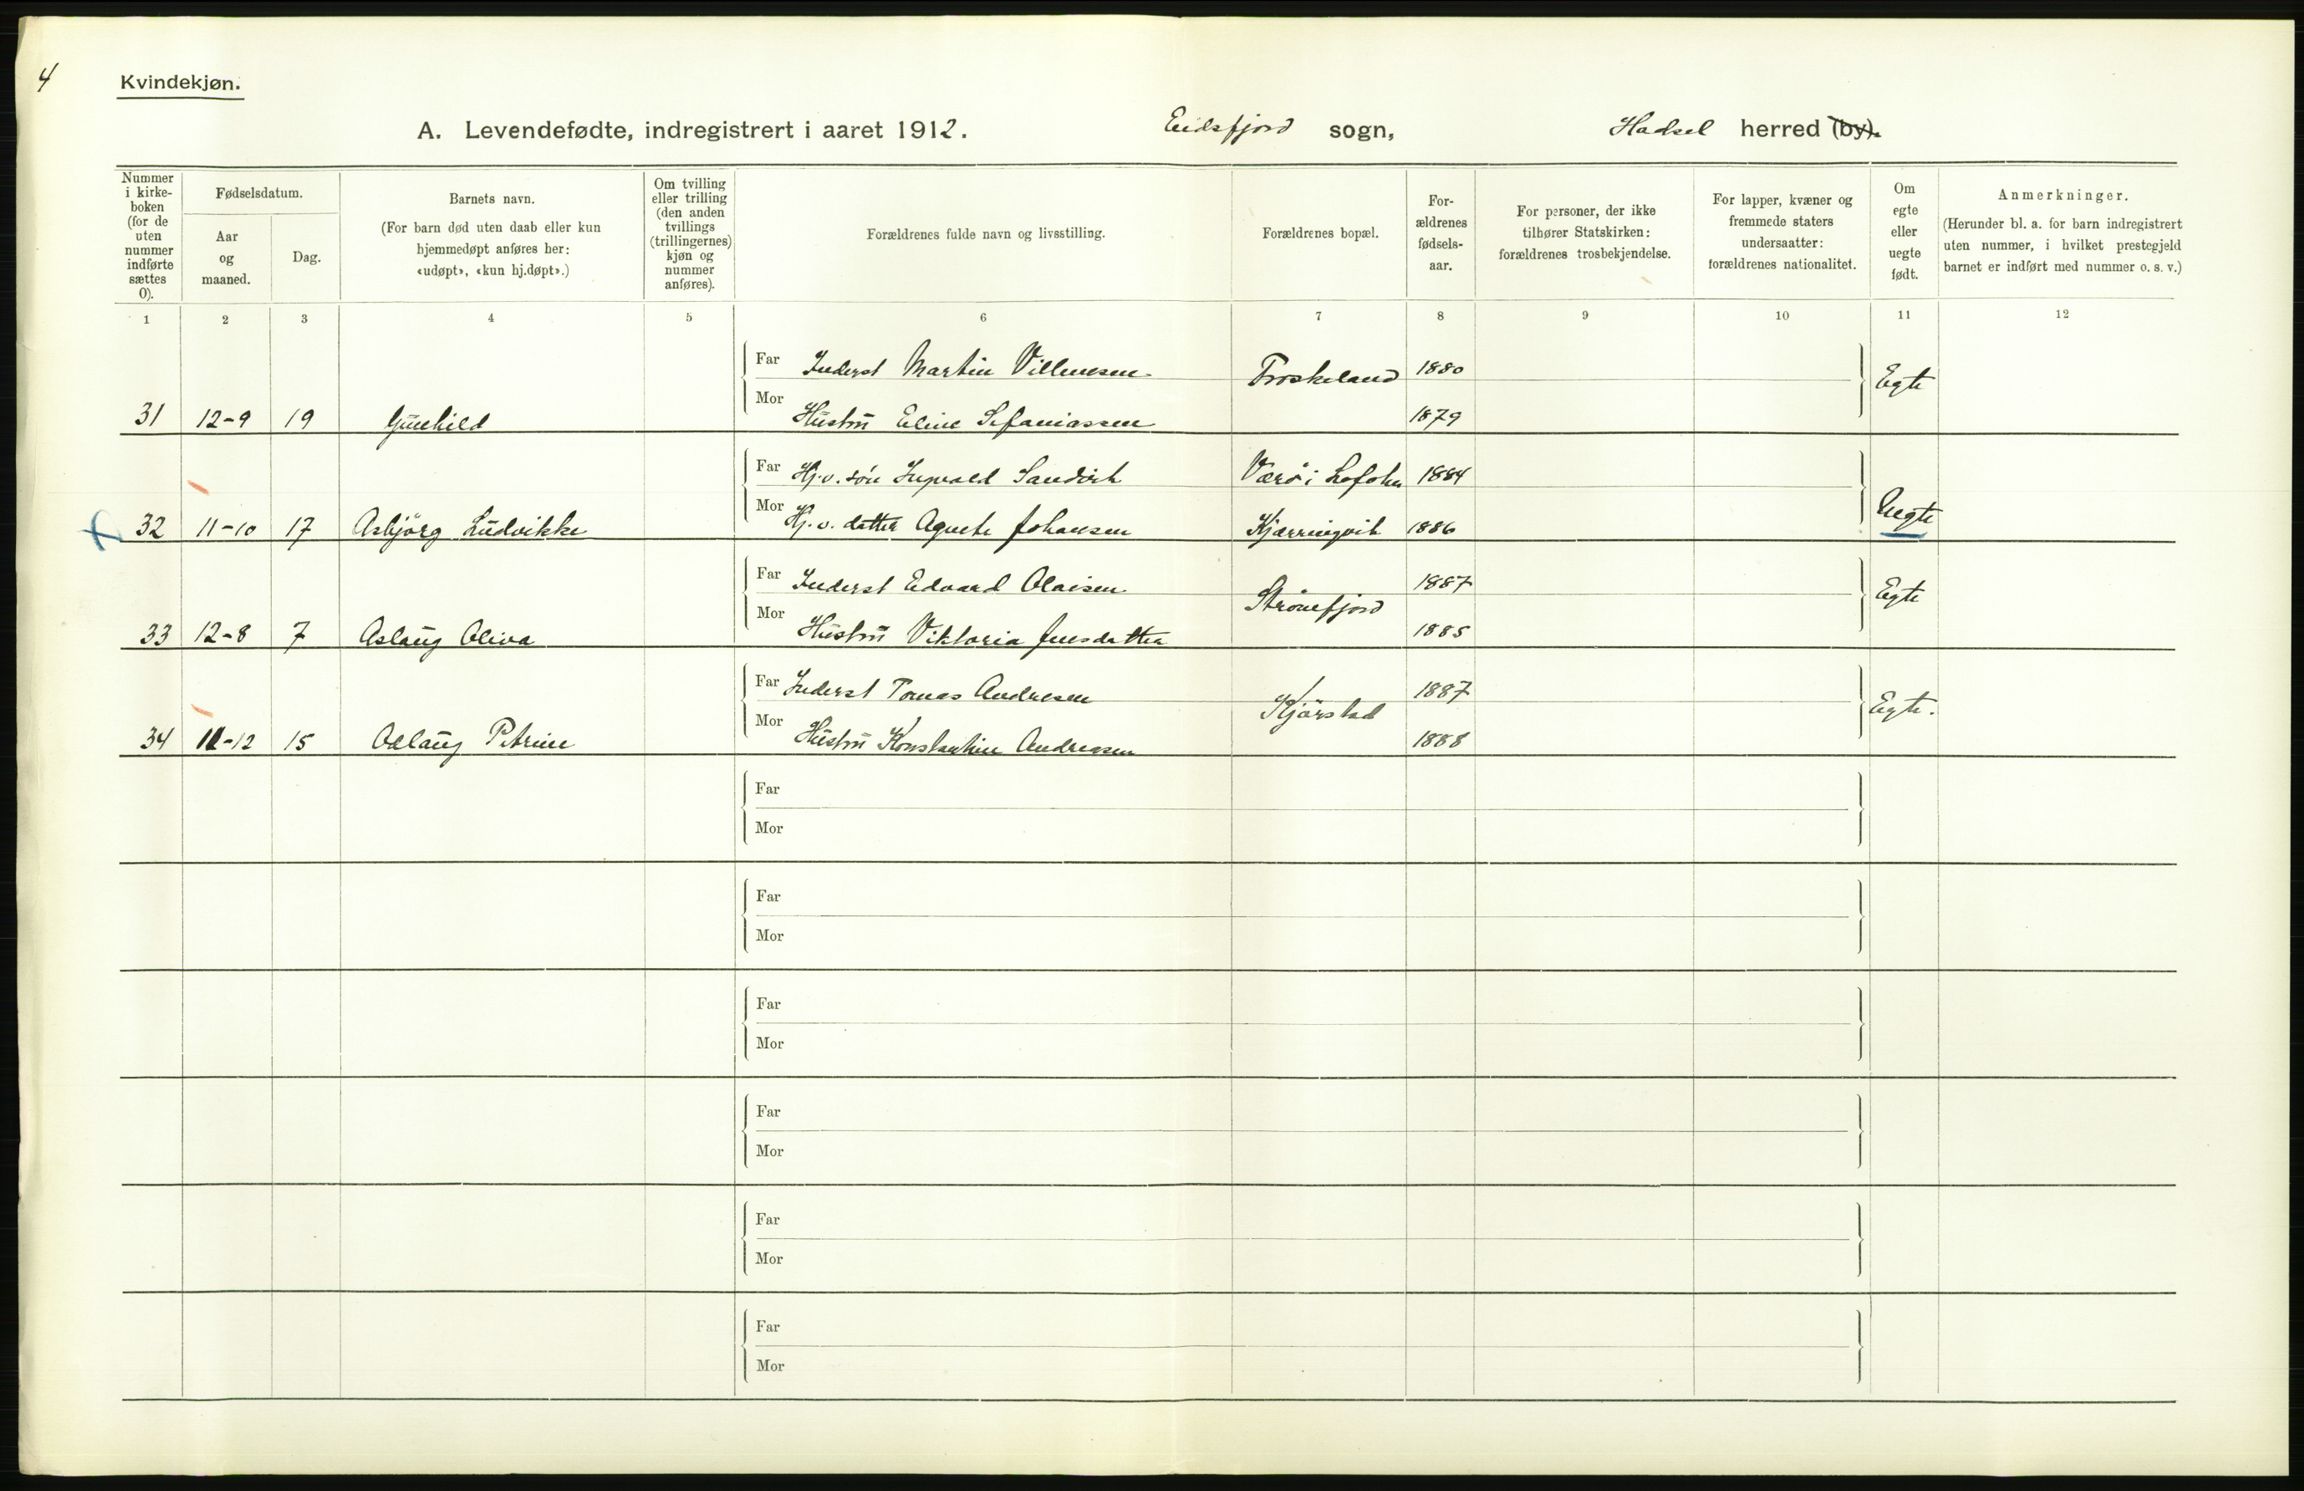 4
Kvindekjøn.
A. Levendefødte, indregistrert i aaret 1912. Eidsfjord sogn, Hadsel herred (by).
Nummer i kirke-boken (for de uten nummer indførte sættes 0).
Fødselsdatum.
Aar og maaned.
Dag.
Barnets navn.
(For barn død uten daab eller kun hjemmedøpt anføres her: «udøpt», «kun hj.døpt».)
Om tvilling eller trilling (den anden tvillings (trillingernes) kjøn og nummer anføres).
Forældrenes fulde navn og livsstilling.
Forældrenes bopæl.
For-ældrenes fødsels-aar.
For personer, der ikke tilhører Statskirken: forældrenes trosbekjendelse.
For lapper, kvæner og fremmede staters undersaatter: forældrenes nationalitet.
Om egte eller uegte født.
Anmerkninger.
(Herunder bl. a. for barn indregistrert uten nummer, i hvilket prestegjeld barnet er indført med nummer o. s. v.)
1 2 3 4 5 6 7 8 9 10 11 12
Far Inderst Martin Villumsen Froskeland 1880 Egte
31 12-9 19 Gunhild Mor Hustru Eline Sefaniassen 1879
Far Hj.v. søn Ingvald Sandvik Værø i Lofoten 1884
32 11-10 17 Asbjörg Ludvikke Mor Hj.v. datter Agnete Johansen Kjærringvik 1886 Uegte
Far Inderst Edvard Olaisen Strönefjord 1887 Egte
33 12-8 7 Aslaug Oliva Mor Hustru Viktoria Jensdatter 1885
Far Inderst Tomas Andresen Kjörstad 1887 Egte.
34 11-12 15 Odlaug Petrine Mor Hustru Konstantine Andreassen 1888
Far
Mor
Far
Mor
Far
Mor
Far
Mor
Far
Mor
Far
Mor